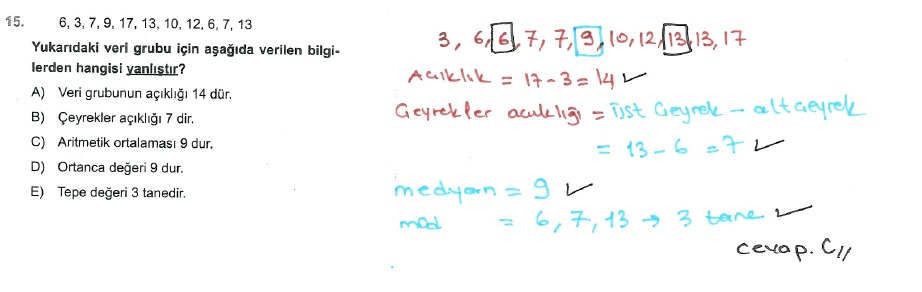 15. 6, 3, 7, 9, 17, 13, 10, 12, 6, 7, 13
Yukarıdaki veri grubu için aşağıda verilen bilgi-
lerden hangisi yanlıştır?
A) Veri grubunun açıklığı 14 dür.
B) Çeyrekler açıklığı 7 dir.
C) Aritmetik ortalaması 9 dur.
D) Ortanca değeri 9 dur.
E) Tepe değeri 3 tanedir.
3, 6, 6, 7, 7, 9, 10, 12, 13, 13, 17
Açıklık = 17-3 = 14 ✓
Çeyrekler açıklığı = üst çeyrek - alt çeyrek
= 13-6 = 7 ✓
medyan = 9 ✓
mod = 6, 7, 13 → 3 tane ✓
cevap. C//